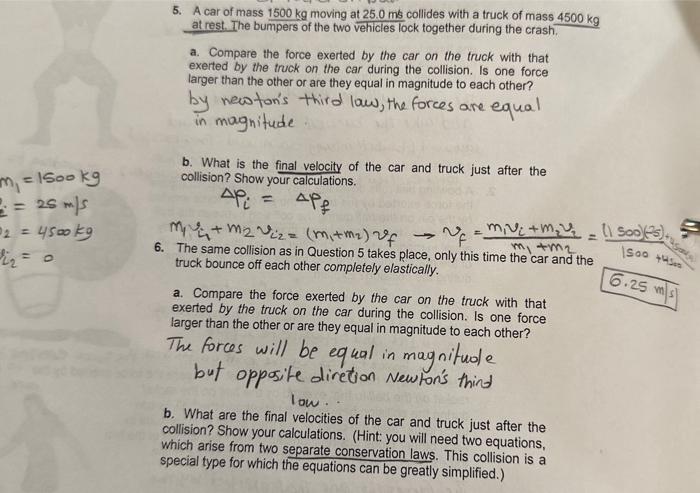 5. A car of mass 1500 kg moving at 25.0 m/s collides with a truck of mass 4500 kg
at rest. The bumpers of the two vehicles lock together during the crash.
a. Compare the force exerted by the car on the truck with that
exerted by the truck on the car during the collision. Is one force
larger than the other or are they equal in magnitude to each other?
by newton's third law, the forces are equal
in magnitude.
b. What is the final velocity of the car and truck just after the
collision? Show your calculations.
m₁ = 1500 kg
= 25 m/s
₂ = 4500 kg
i₂ = 0
ΔPi = ΔPf
m₁vi₁ + m₂vi₂ = (m₁+m₂)vf → vf = (m₁vi + m₂v₂)/(m₁+m₂) = (1500)(25)+ / 1500 +4500
6.25 m/s
6. The same collision as in Question 5 takes place, only this time the car and the
truck bounce off each other completely elastically.
a. Compare the force exerted by the car on the truck with that
exerted by the truck on the car during the collision. Is one force
larger than the other or are they equal in magnitude to each other?
The forces will be equal in magnitude
but opposite diretion Newton's third
low..
b. What are the final velocities of the car and truck just after the
collision? Show your calculations. (Hint: you will need two equations,
which arise from two separate conservation laws. This collision is a
special type for which the equations can be greatly simplified.)